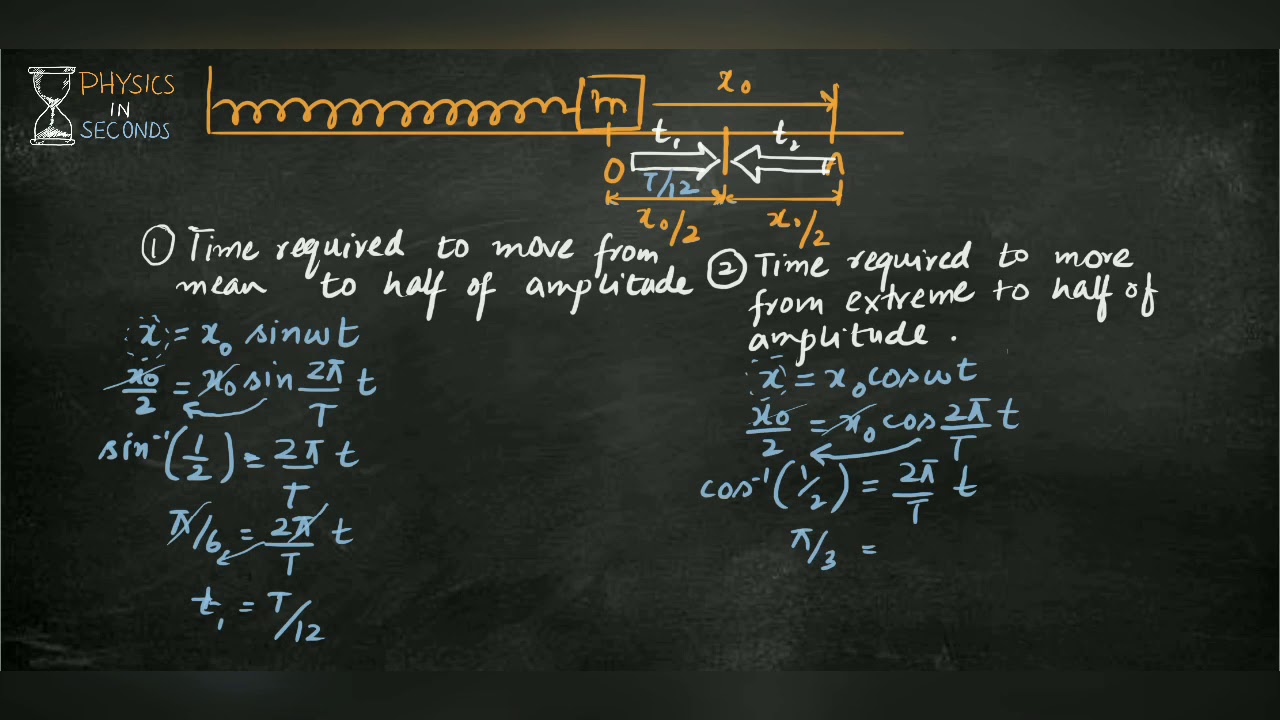 PHYSICS
IN
SECONDS
m
x₀
t₁
t₂
O
A
T/12
x₀/2
x₀/2
① Time required to move from
mean to half of amplitude
x = x₀ sinωt
x₀/2 = x₀ sin 2π/T t
sin⁻¹(1/2) = 2π/T t
π/6 = 2π/T t
t₁ = T/12
② Time required to more
from extreme to half of
amplitude.
x = x₀ cosωt
x₀/2 = x₀ cos 2π/T t
cos⁻¹(1/2) = 2π/T t
π/3 =